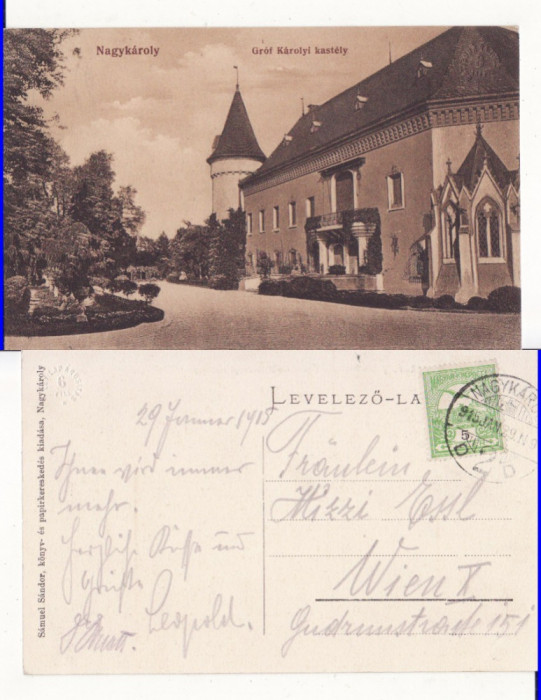 Nagykároly
Gróf Károlyi kastély
Sámuel Sándor, könyv- és papirkereskedés kiadása, Nagykároly
LEVELEZŐ-LA
NAGYKÁRO
915 JAN. 29. N 9
D
5
6
29 Jenner 1915
Ihnen wird immer
mehr.
Herzliche Küsse und
Grüsse
Leopold.
Fräulein
Mizzi Essl
Wien X
Gudrunstrasse 151